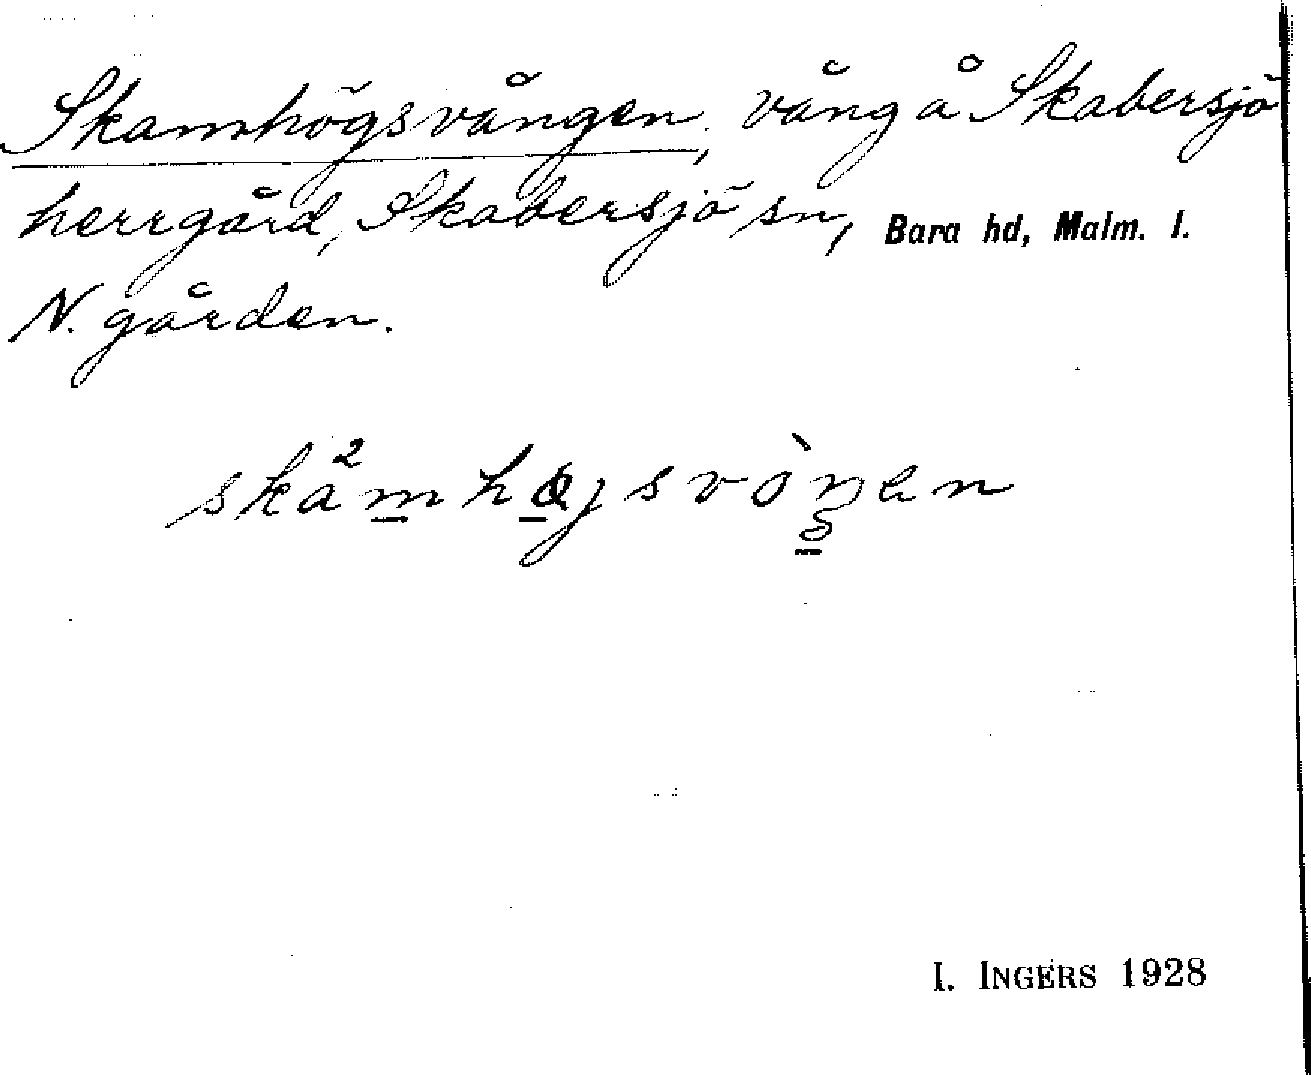 Skamhögsvången, vång å Skabersjö
herrgård, Skabersjö sn, Bara hd, Malm. l.
N. gården.
I. INGERS 1928